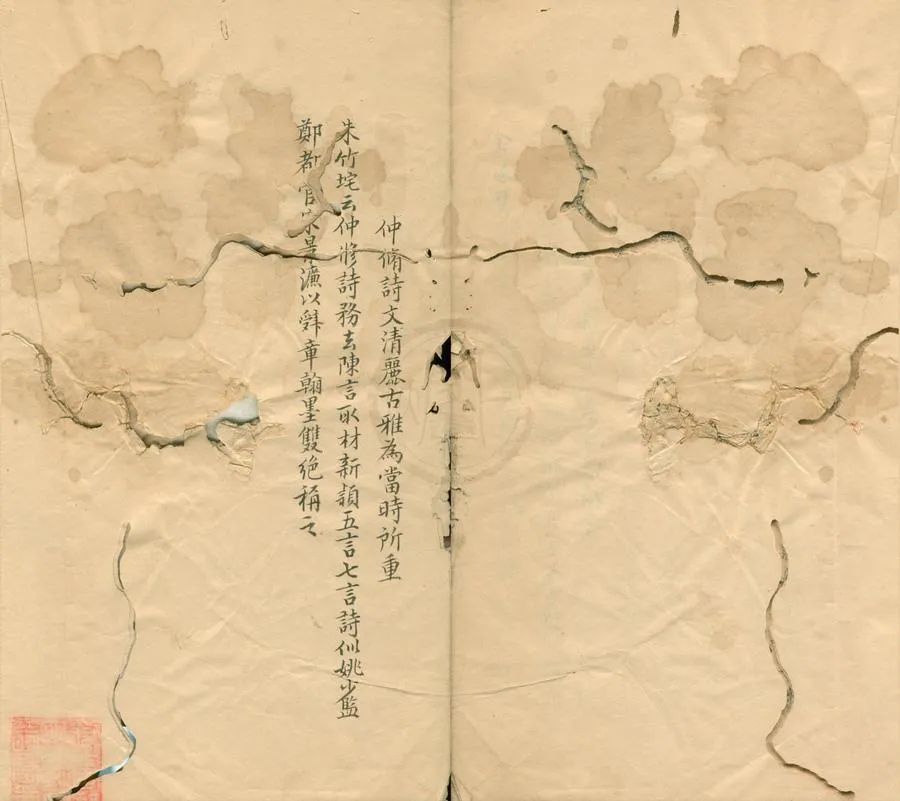 仲脩詩文清麗古雅為當時所重
朱竹垞云仲脩詩務去陳言取材新穎五言七言詩似姚少監
鄭都官宋景濂以辭章翰墨雙絶稱之